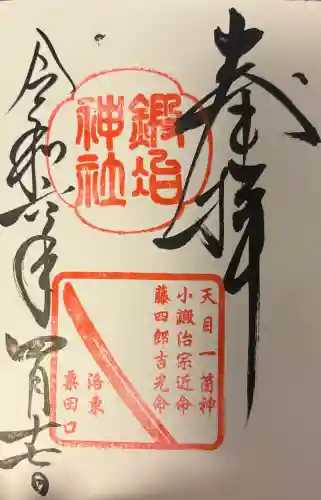 奉拝
鍛冶
神社
天目一箇神
小鍛治宗近命
藤四郎吉光命
洛東
粟田口
令和六年
四月十七日